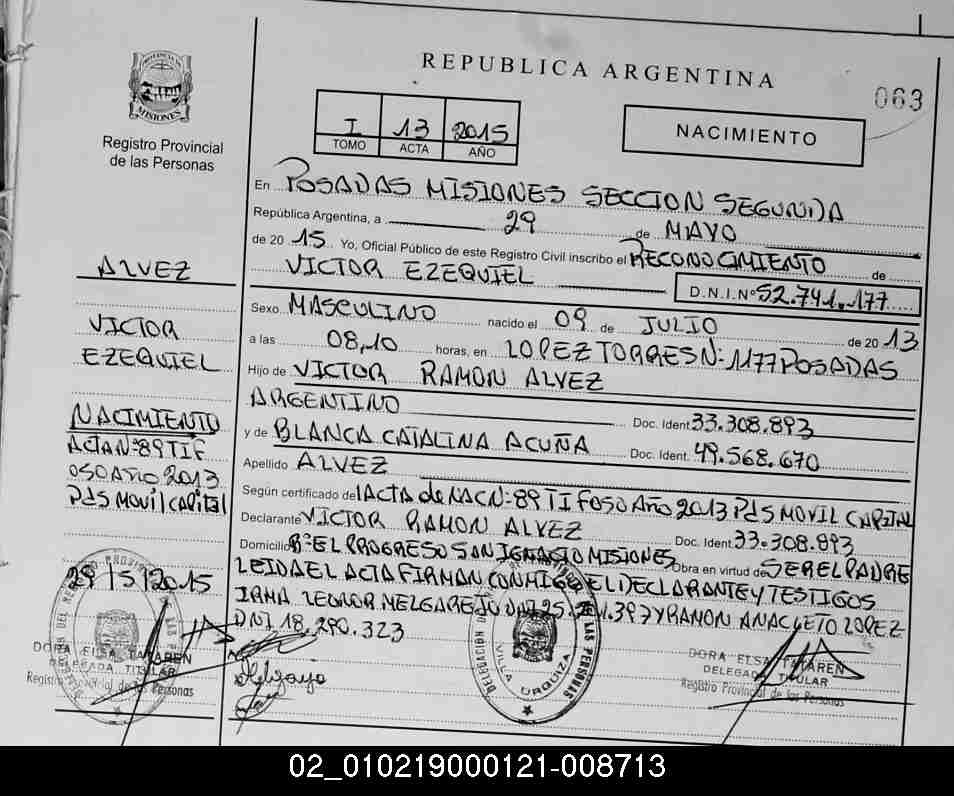 REPUBLICA ARGENTINA
063
PROVINCIA DE MISIONES
Registro Provincial
de las Personas
I 13 2015
TOMO ACTA AÑO
NACIMIENTO
En POSADAS MISIONES SECCION SEGUNDA
República Argentina, a 29 de MAYO
de 20 15 Yo, Oficial Público de este Registro Civil inscribo el RECONOCIMIENTO de
VICTOR EZEQUIEL D.N.I.Nº 52.741.177
Sexo MASCULINO nacido el 09 de JULIO de 20 13
a las 08,10 horas, en LOPEZ TORRES Nº: 1177 POSADAS
Hijo de VICTOR RAMON ALVEZ
ARGENTINO Doc. Ident. 33.308.893
y de BLANCA CATALINA ACUÑA Doc. Ident. 49.568.670
Apellido ALVEZ
Según certificado de ACTA de NAC Nº: 89 TI FOSO AÑO 2013 PdS MOVIL CAPITAL
Declarante VICTOR RAMON ALVEZ Doc. Ident. 33.308.893
Domicilio Bº EL PROGRESO SAN IGNACIO MISIONES Obra en virtud de SER EL PADRE
LEIDA EL ACTA FIRMAN CONMIGO EL DECLARANTE Y TESTIGOS
IRMA LEONOR MELGAREJO DNI 25. Y RAMON ANACLETO LOPEZ
DNI 18.290.323
ALVEZ
VICTOR
EZEQUIEL
NACIMIENTO
ACTA Nº: 89 TI F
OSO AÑO 2013
PdS MOVIL CAPITAL
29/5/2015
DORA ELSA TAPAREN
DELEGADA TITULAR
Registro Provincial de las Personas
DELEGACIÓN DEL REGISTRO PROVINCIAL DE LAS PERSONAS
VILLA URQUIZA
DORA ELSA TAPAREN
DELEGADA TITULAR
Registro Provincial de las Personas
02_010219000121-008713